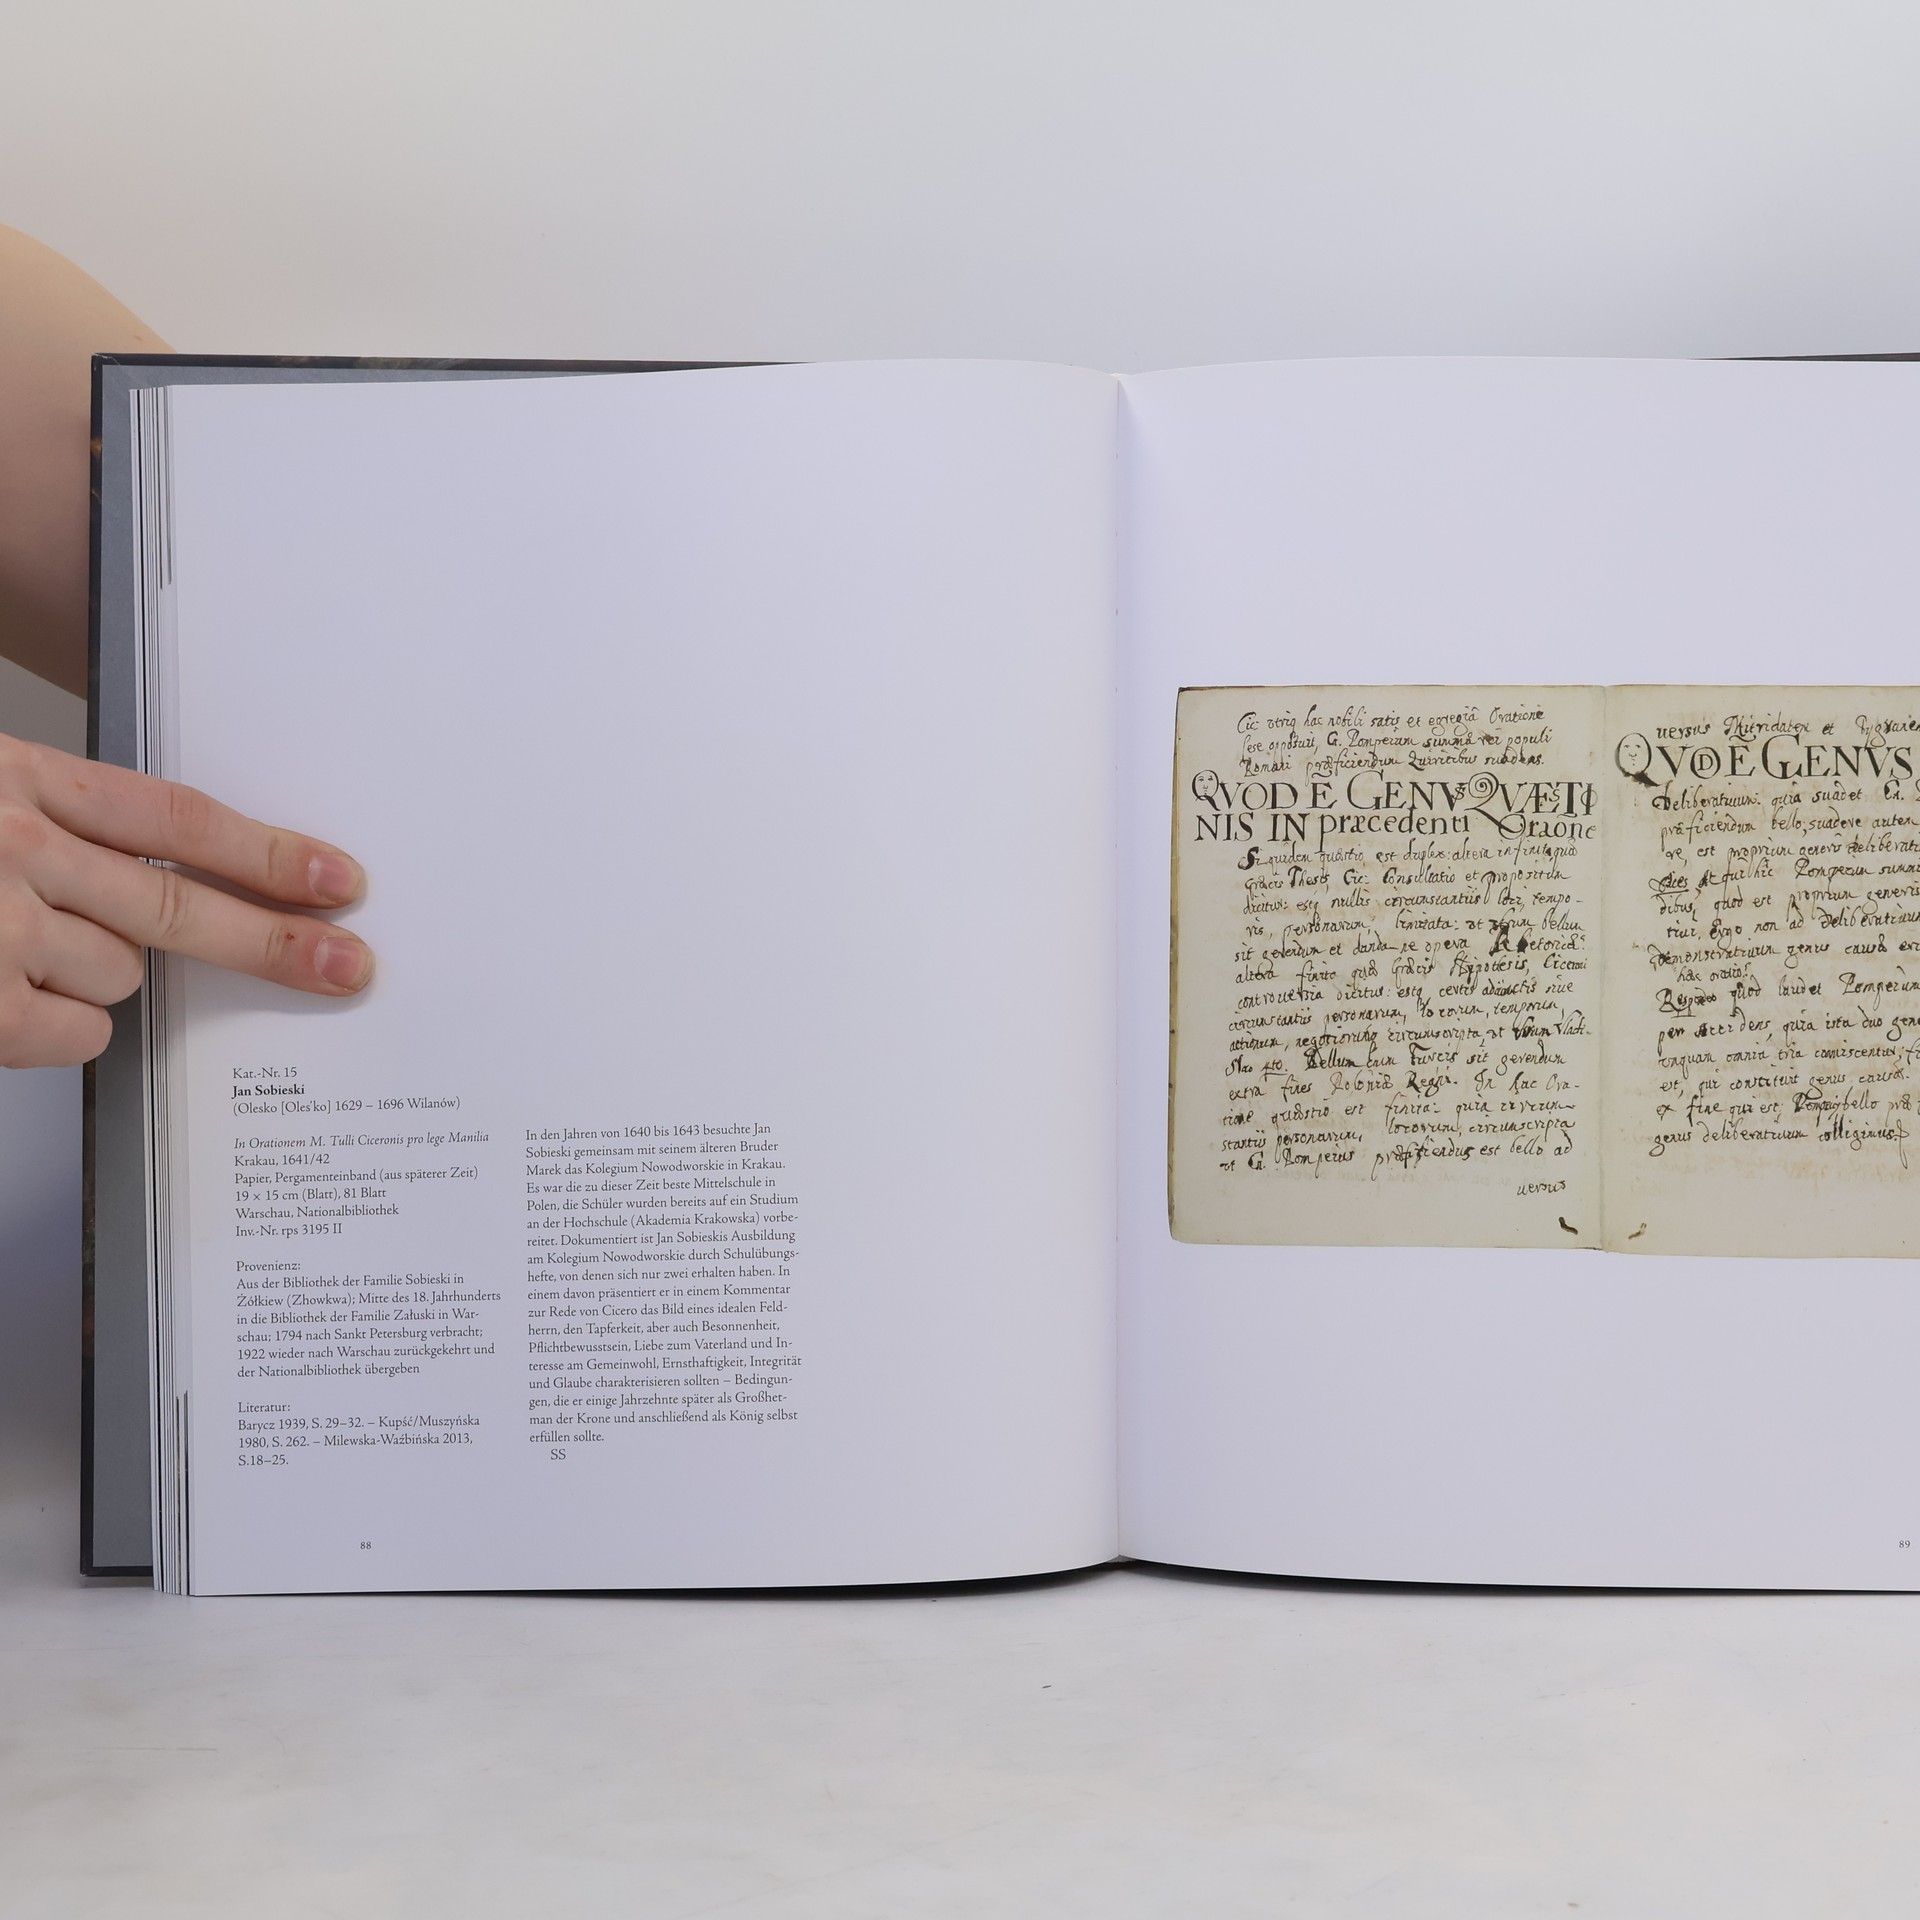 Kat.-Nr. 15
Jan Sobieski
(Olesko [Oles'ko] 1629 – 1696 Wilanów)
In Orationem M. Tulli Ciceronis pro lege Manilia
Krakau, 1641/42
Papier, Pergamenteinband (aus späterer Zeit)
19 × 15 cm (Blatt), 81 Blatt
Warschau, Nationalbibliothek
Inv.-Nr. rps 3195 II
Provenienz:
Aus der Bibliothek der Familie Sobieski in
Żółkiew (Zhowkwa); Mitte des 18. Jahrhunderts
in die Bibliothek der Familie Załuski in War-
schau; 1794 nach Sankt Petersburg verbracht;
1922 wieder nach Warschau zurückgekehrt und
der Nationalbibliothek übergeben
Literatur:
Barycz 1939, S. 29–32. – Kupść/Muszyńska
1980, S. 262. – Milewska-Waźbińska 2013,
S.18–25.
In den Jahren von 1640 bis 1643 besuchte Jan
Sobieski gemeinsam mit seinem älteren Bruder
Marek das Kolegium Nowodworskie in Krakau.
Es war die zu dieser Zeit beste Mittelschule in
Polen, die Schüler wurden bereits auf ein Studium
an der Hochschule (Akademia Krakowska) vorbe-
reitet. Dokumentiert ist Jan Sobieskis Ausbildung
am Kolegium Nowodworskie durch Schulübungs-
hefte, von denen sich nur zwei erhalten haben. In
einem davon präsentiert er in einem Kommentar
zur Rede von Cicero das Bild eines idealen Feld-
herrn, den Tapferkeit, aber auch Besonnenheit,
Pflichtbewusstsein, Liebe zum Vaterland und In-
teresse am Gemeinwohl, Ernsthaftigkeit, Integrität
und Glaube charakterisieren sollten – Bedingun-
gen, die er einige Jahrzehnte später als Großhet-
man der Krone und anschließend als König selbst
erfüllen sollte.
SS
88
Cic: utriq hac nobili satis et egregiâ Oratione
sese opposuit, G. Pompeium summâ rei populi
Romani præficiendum Quiritibus suadens.
QUOD E GENUS QUÆSTIO
NIS IN præcedenti Oraone
Siquidem quæstio est duplex: altera infinita quâ
Græcis Thesis, Cic: Consultatio et propositum
dicitur: estq nullis circunstantiis loci, tempo-
ris, personarum, limitata: ut utrum bellum
sit gerendum et danda ne opera Rhetoricæ?
altera finita quæ Græcis Hypothesis, Ciceroni
controversia dicitur: estq certis adiunctis sive
circunstantiis personarum, locorum, temporum,
actionum, negotiorumq circumscripta, ut utrum Vladi-
slao 4to. Bellum cum Turcis sit gerendum
extra fines Poloniæ Regni. In hac Ora-
tione quæstio est finita: quia circum-
stantiis personarum, locorum, circumscripta
ut Cn. Pompeius præficiendus est bello ad
versus
versus Mitridaten et
QVOD E GENVS
Deliberativum: quia suadet Cn.
præficiendum bello; suadere autem
est proprium generis deliberati
At qui hic Pompeium summis
dibus, quod est proprium generis
tivi, Ergo non ad Deliberativum
Demonstrativum genus causæ
hæc oratio?
Respondeo quod laudet Pompeium
per accidens, quia ista duo gene
omnia tria comiscentur,
est, qui constituit genus causæ.
ex fine qui est, Pompeij bello
genus deliberativum colligimus.
89